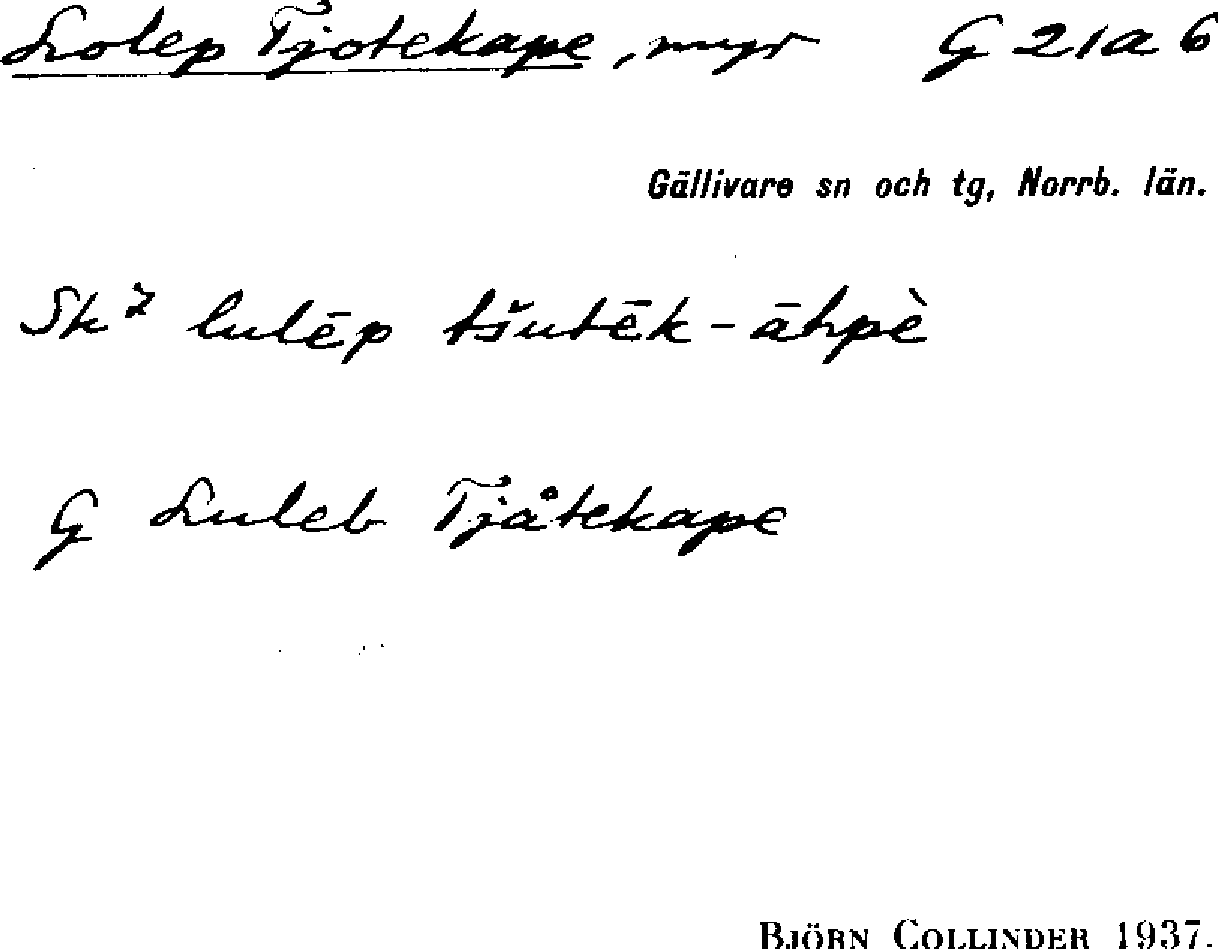 Lolep Tjotekape, myr G 21a6
Gällivare sn och tg, Norrb. län.
Sk 7 lulēp tšutēk-āhpè
G Luleb Tjåtekape
BJÖRN COLLINDER 1937.